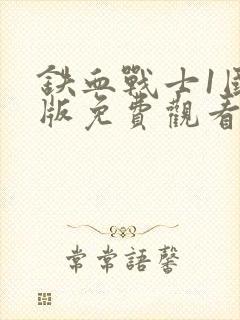 鉄血戰士1國
版免費觀看
常常語馨